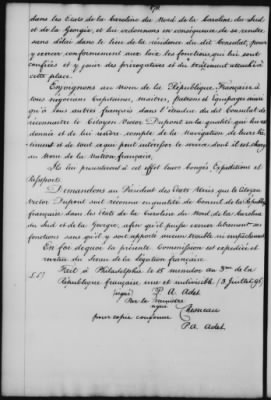 dans les Etats de la Caroline du Nord de la Caroline du Sud
et de la Georgie, et lui ordonnons en conséquence de se rendre
sans délai dans le lieu de la résidence du dit Consulat, pour
y exercer conformement aux loix, les fonctions qui lui sont
confiées et y jouir des prérogatives et du traitement attachés à
cette place.
Enjoignons au Nom de la République Française à
tous négocians Capitaines, Maitres, Patrons et Equipages ainsi
qu'à tous autres français dans l'étendue du dit Consulat de
reconnaitre le Citoyen Victor Dupont en la qualité qui lui est
donnée et de lui rendre compte de la Navigation de leurs bâ-
timens et de tout ce que peut intéresser le service dont il est chargé
au Nom de la Nation française,
Ils lui présenteront à cet effet leurs congés, Expéditions et
Passeports.
Demandons au Président des Etats Unies que le Citoyen
Victor Dupont soit reconnu en qualité de Consul de la République
française dans les Etats de la Caroline du Nord de la Caroline
du Sud et de la Georgie, afin qu'il puisse exercer librement ses
fonctions sans qu'il y soit apporté aucun trouble ni empêchement
En foi de quoi la présente Commission est expédiée et
revêtue du Sceau de la Légation française
Fait à Philadelphie le 15 messidor au 3me de la
République française une et indivisible (3 Juillet 95)
signé P. A. Adet
Par le ministre
signé
pour copie conforme
P. A. Adet